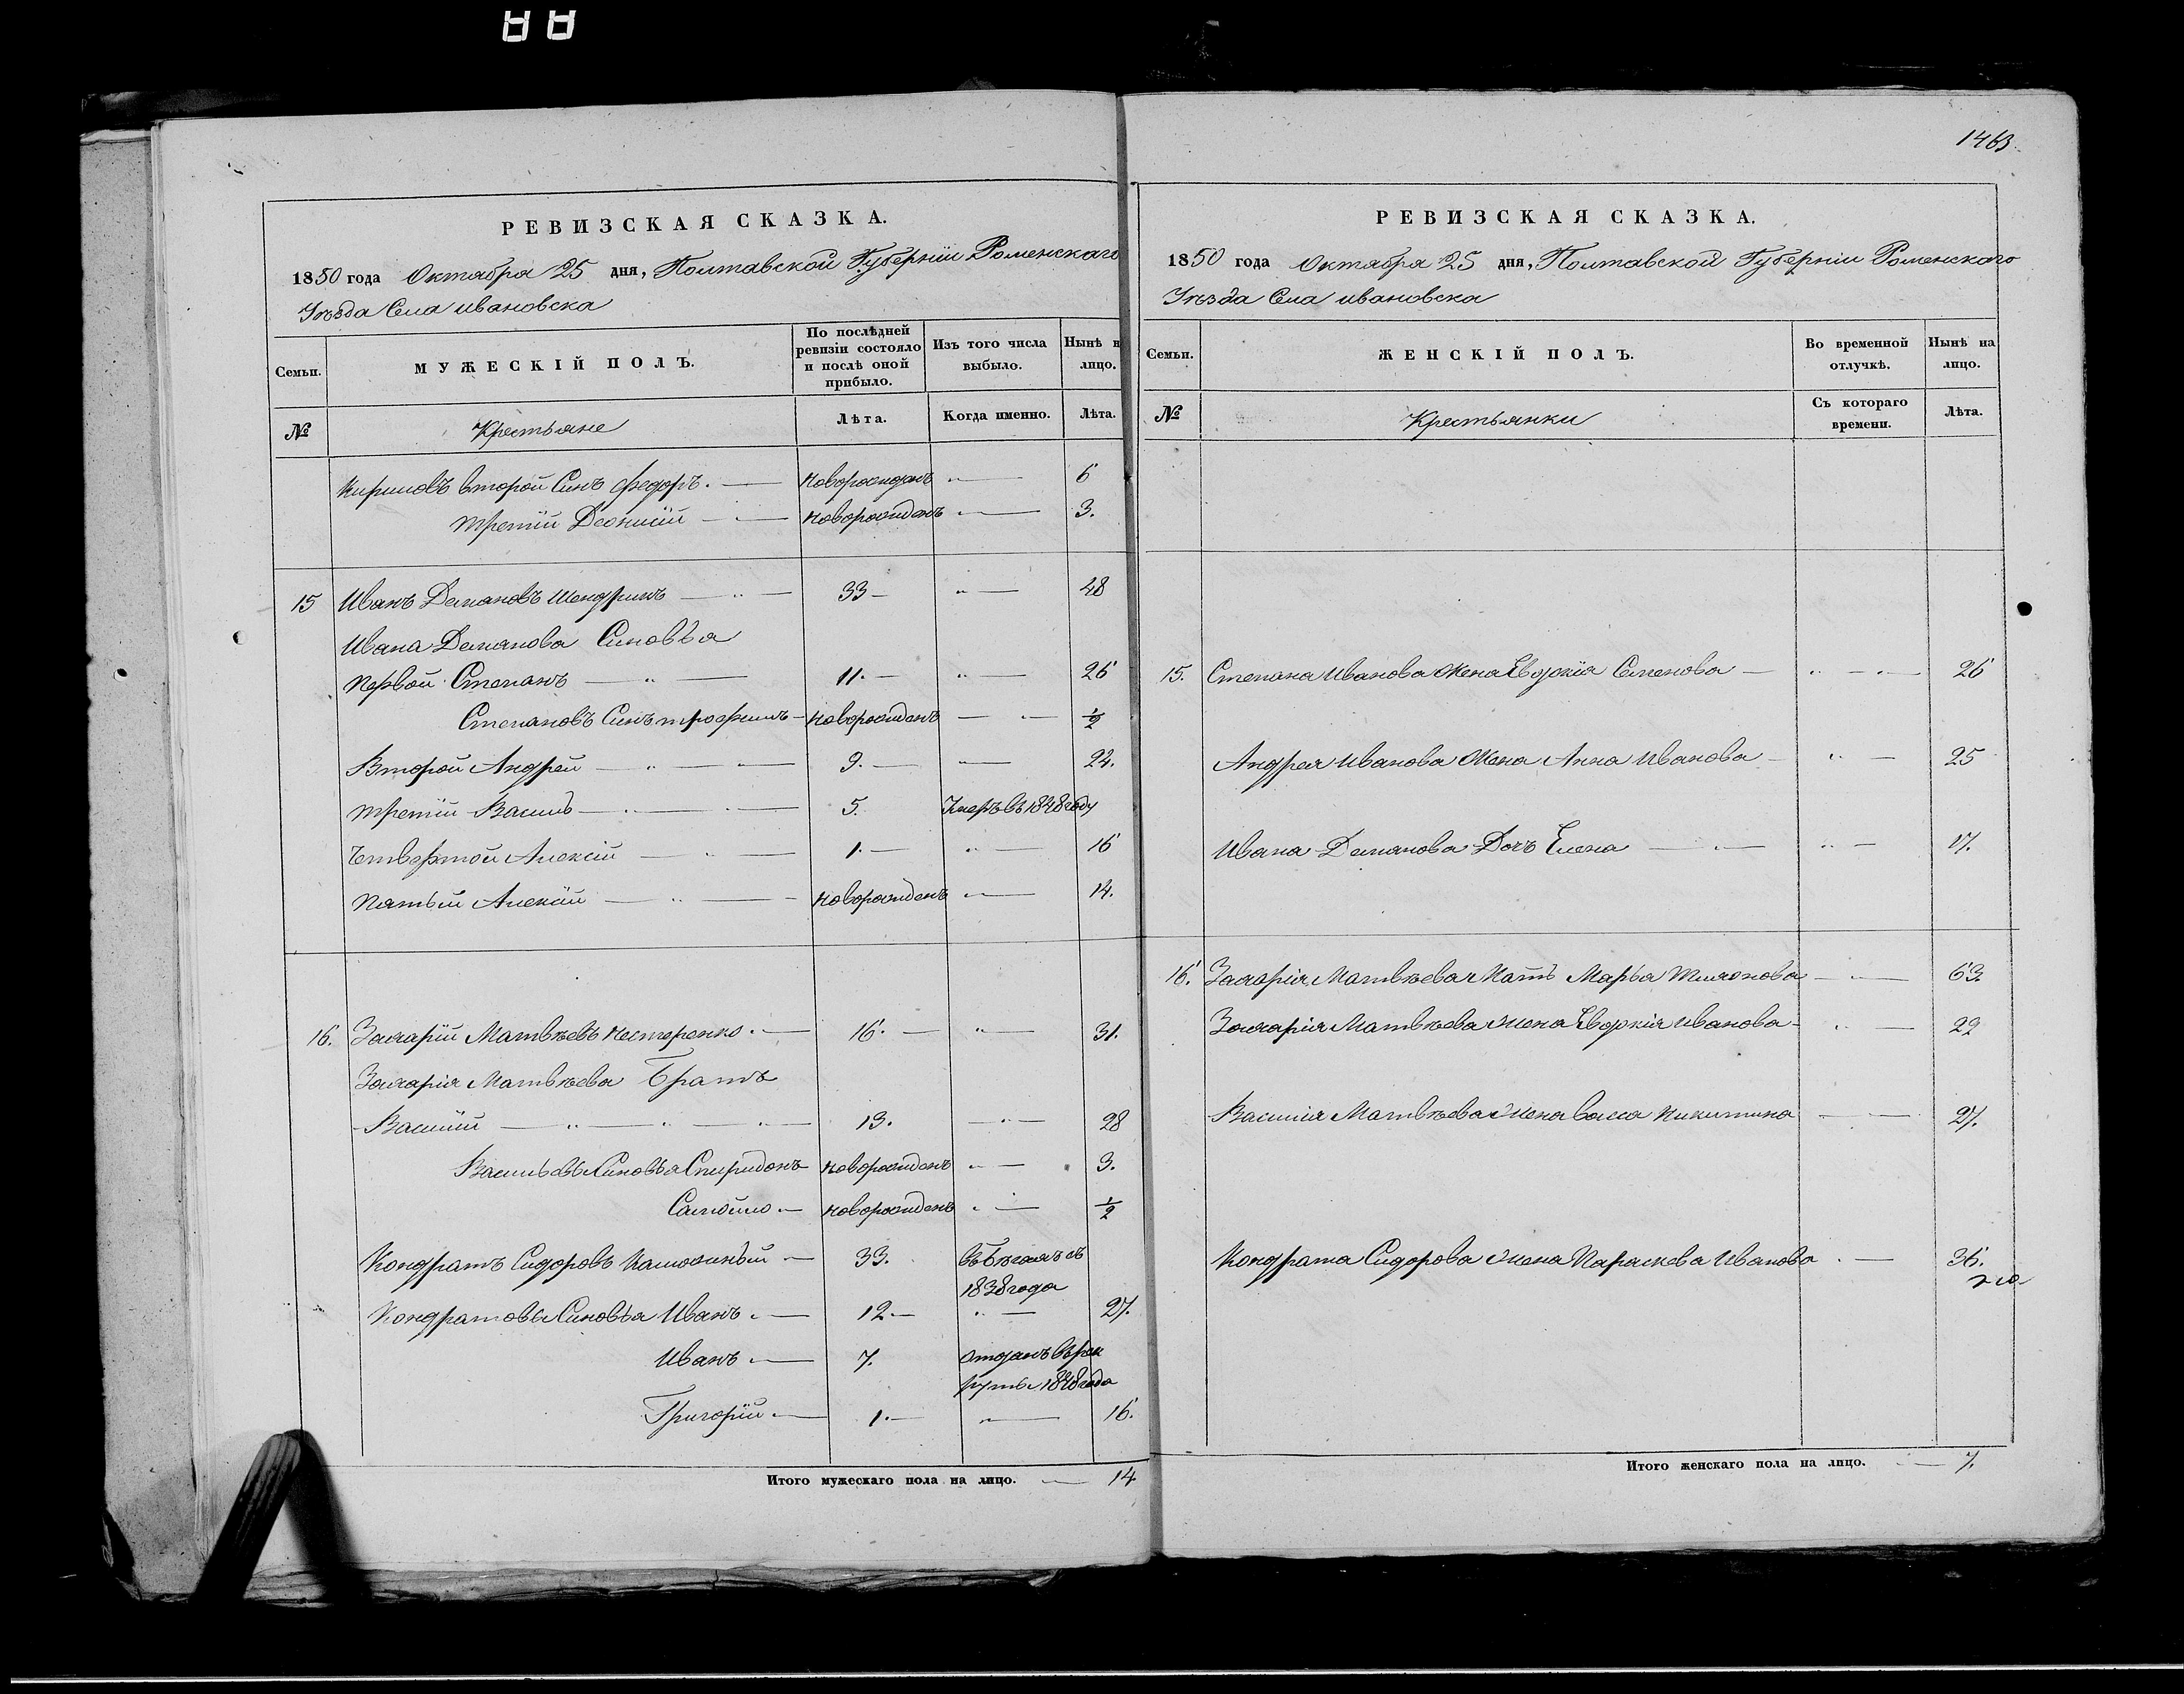 1463
РЕВИЗСКАЯ СКАЗКА.
1850 года Октября 25 дня, Полтавской Губерніи Роменскаго
Уѣзда Села ивановска
Семьи.
МУЖЕСКІЙ ПОЛЪ.
По послѣдней ревизіи состояло и послѣ оной прибыло.
Изъ того числа выбыло.
Нынѣ н лицо.
№
Крестьяне
Лѣта.
Когда именно.
Лѣта.
Кириловъ второй Синъ Федоръ. новорожденъ 6
третій Деонисій новорожденъ 3.
15 Иванъ Демяновъ Шендрикъ 33 48
Ивана Демянова Синовья
Первой Степанъ 11. 26
Степановъ Синъ трофимъ новорожденъ 1/2
Второй Андрей 9. 24.
третій Василь 5. Умеръ въ 1848 году
Четвертой Алексій 1. 16
Пятый Алексій новорожденъ 14.
16. Захарій Матвѣевъ Нестеренко. 16. 31.
Захарія Матвѣева Братъ
Василій 13. 28
Васильевы Синовья Спиридонъ новорожденъ 3.
Самойло новорожденъ 1/2
Кондратъ Сидоровъ 33. въ бѣгахъ съ
1838 года
Кондратовы Синовья Иванъ. 12. 27.
Иванъ 7. отданъ въ рек
руты 1848 года
Григорій 1. 16.
Итого мужескаго пола на лицо. 14
РЕВИЗСКАЯ СКАЗКА.
1850 года Октября 25 дня, Полтавской Губерніи Роменскаго
Уѣзда Села ивановска
Семьи.
ЖЕНСКІЙ ПОЛЪ.
Во временной отлучкѣ.
Нынѣ на лицо.
№
Крестьянки
Съ котораго времени.
Лѣта.
15. Степана Иванова Жена Евдокія Семенова 26
Андрея Иванова Жена Анна Иванова 25
Ивана Демянова Дочь Елена 17.
16. Захарія Матвѣева Мать Марья 63.
Захарія Матвѣева Жена Евдокія Иванова 29
Василія Матвѣева Жена Васса Никитина 27.
Кондрата Сидорова Жена Параскева Иванова 36.
Итого женскаго пола на лицо. 7.